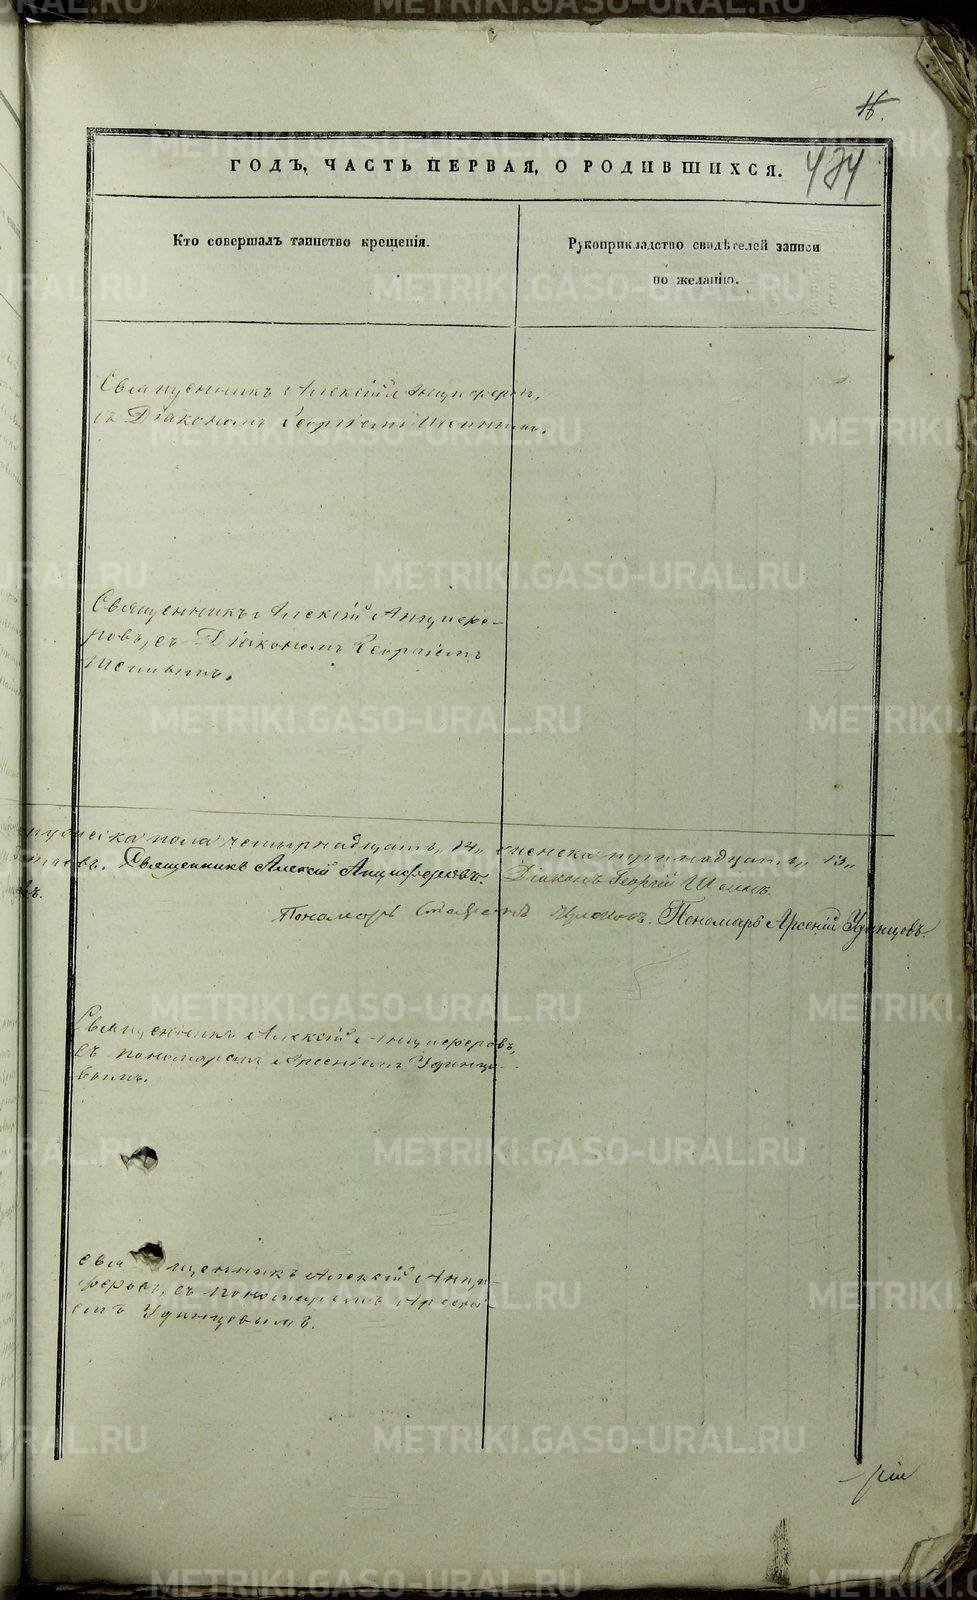 16.
434
ГОДЪ, ЧАСТЬ ПЕРВАЯ, О РОДИВШИХСЯ.
Кто совершалъ таинство крещенія.
Рукоприкладство свидѣтелей записи
по желанію.
Священникъ Алексій Анциферовъ,
съ Діакономъ Георгіемъ
Священникъ Алексій Анцифе-
ровъ, съ Діакономъ Георгіемъ
мужеска пола четырнадцать, 14, женска тринадцать, 13,
Священникъ Алексій Анциферовъ. Діаконъ Георгій
Пономарь Стефанъ Пономарь Арсеній Удинцовъ.
Священникъ Алексій Анциферовъ,
съ пономаремъ Арсеніемъ Удинцо-
вымъ.
Священникъ Алексій Анци-
феровъ, съ пономаремъ Арсені-
емъ Удинцовымъ.
METRIKI.GASO-URAL.RU